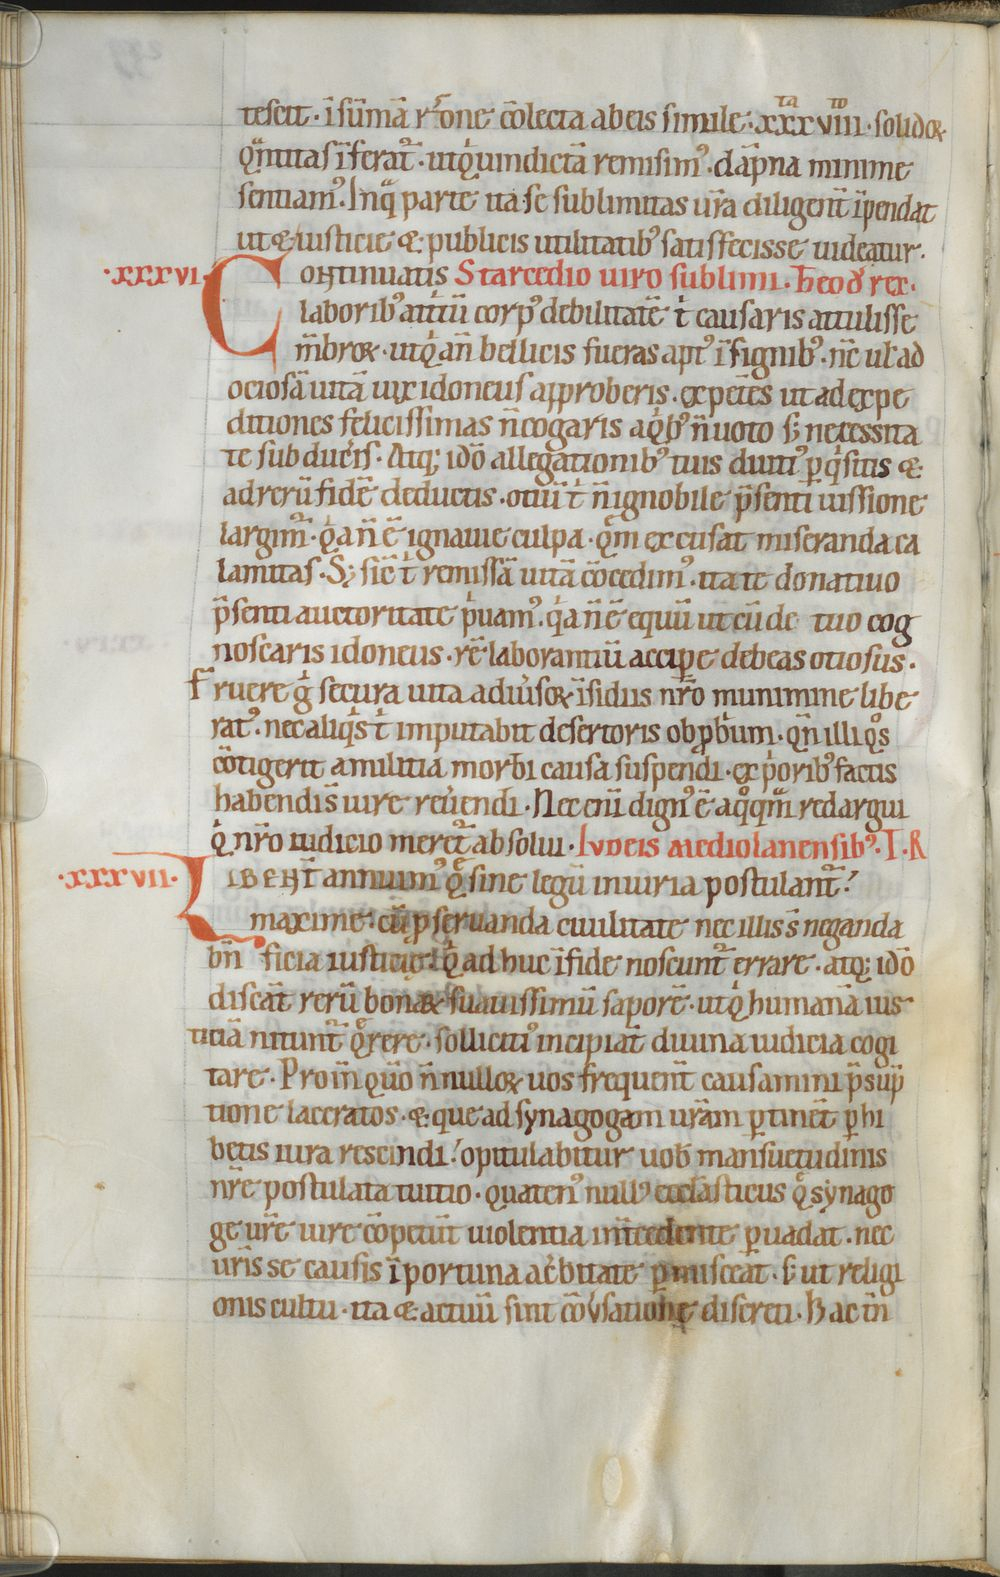 tescit · ī sūmā r̄one c̄olecta ab eis simile · xxxviii · solidoꝝ
qñtitas īferat᷑ · ut q̄ uindictā remisim᷒ · dāpna minime
sentiam᷒ · In q̄ parte ita se sublimitas ur̄a diligent̄ īpendat
ut & iusticie & publicis utilitatib᷒ satisfecisse uideatur ·
·xxxvi· Continuatis Starcedio uiro sublimi · Theod̄ rex ·
laborib᷒ attritū corp᷒ debilitatē t̄ causaris attulisse
m̄broꝝ · ut qͥ an̄ bellicis fueras apt᷒ īsignib᷒ · n̄c ul̄ ad
ociosā uitā uix idoneus approberis · expetēs ut ad expe
ditiones felicissimas n̄ cogaris a qͥb᷒ n̄ uoto s; necessita
te subduc̄is · Atq; idō allegationib᷒ tuis diuti᷒ ꝑqͥsitis &
ad rerū fidē deductis · otiū t̄ n̄ ignobile p̄senti iussione
largim᷑ · qͥa n̄ ē ignauie culpa · qᷓm excusat miseranda ca
lamitas · S; sic̄ t̄ remissā uitā c̄ocedim᷒ · ita te donatiuo
p̄senti auctoritate pͥuam᷒ · qͥa n̄ ē equū ut cū de tuo cog
noscaris idoneus · rē laborantiū accipe debeas otiosus ·
Fruere g̊ secura uita adūsoꝝ īsidiis nr̄o munimine libe
rat᷒ · nec aliqͥs t̄ imputabit desertoris obꝓbͥum · qn̄ illi qͦs
c̄otigerit a militia morbi causa suspendi · ex pͥoribᷤ factis
habendis̄ iure reūendi · Nec enī dign᷒ ē a qͦqᷓm redargui
qͥ nr̄o iudicio meret᷑ absolui · Iudeis mediolanensib᷒ · T · R
·xxxvii· Libent̄ annuim᷒ qͤ sine legū iniuria postulant᷑ ·
maxime · cū ꝓ seruanda ciuilitate nec illis s̄ neganda
bn̄ficia iusticie · qͥ ad huc ī fide noscunt᷑ errare · atq; idō
discāt rerū bonaꝝ suauissimū saporē · ut qͥ humanā ius
ticiā nitunt᷑ qͤrere · solliciti᷒ incipiāt diuina iudicia cogi
tare · Proin̄ qūo n̄nulloꝝ uos frequent̄ causamini p̄sūp
tione laceratos · & que ad synagogam urām ꝑtinēt ꝑhi
betis iura rescindi · opitulabitur uob̄ mansuetudinis
nr̄e postulata tuitio · quaten᷒ null᷒ ecclāsticus qͤ synago
ge ur̄e iure c̄opetūt uiolentia int̄cedente ꝑuadat · nec
ur̄is se causis īportuna ac̄bitate ꝑmisceat · s; ut religi
onis cultu · ita & actuū sint c̄oūsatione discreti · Hac in̄